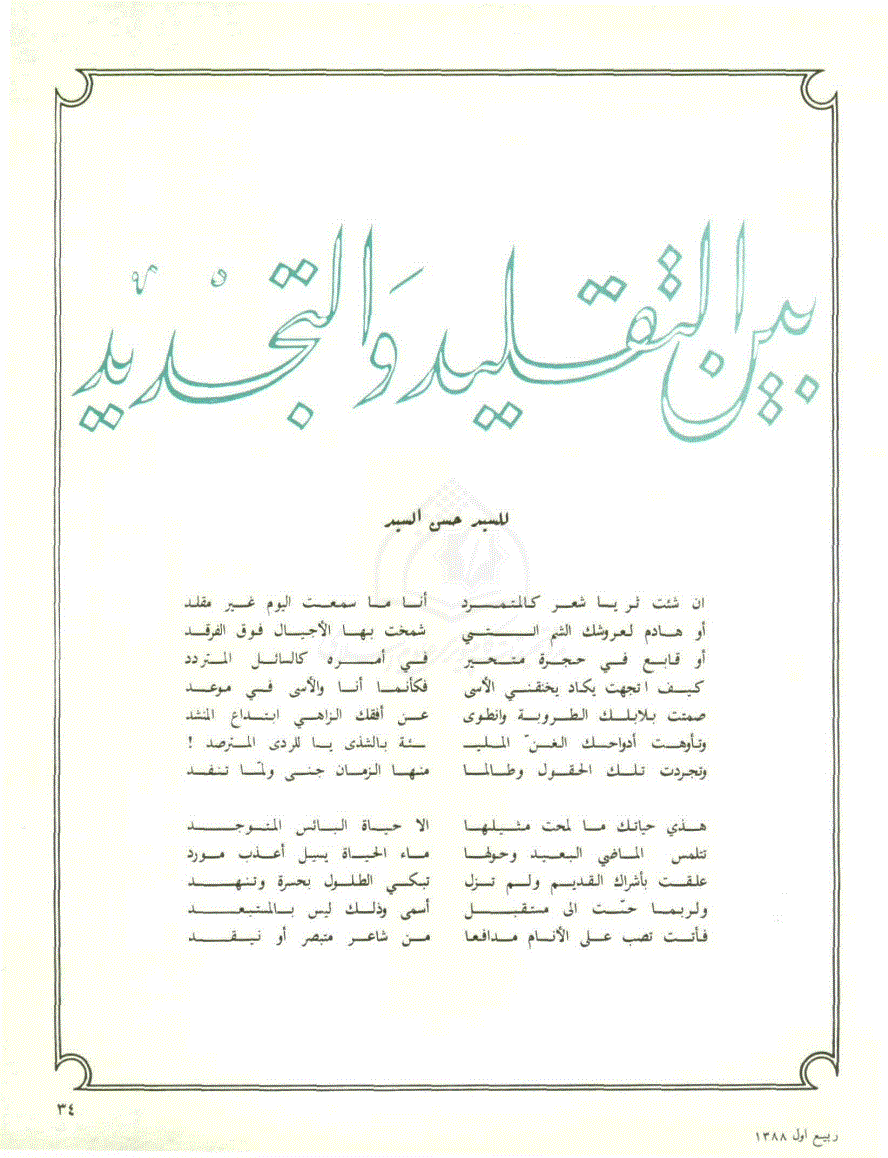 بين التقليد والتجديد
للسيد حسن السيد
ان شئت ثر يا شعر كالمتمرد أنا ما سمعت اليوم غير مقلد
أو هادم لعروشك الشم التي شمخت بها الأجيال فوق الفرقد
أو قابع في حجرة متحير في أمره كالسائل المتردد
كيف اتجهت يكاد يخنقني الأسى فكأنما أنا والأسى في موعد
صمتت بلابلك الطروبة وانطوى عن أفقك الزاهي ابتداع المنشد
وتأوهت أدواحك الغنّ المليـ ـئة بالشذى يا للردى المترصد !
وتجردت تلك الحقول وطالما منها الزمان جنى ولمّا تنفد
هذي حياتك ما لمحت مثيلها الا حياة البائس المتوجد
تتلمس الماضي البعيد وحولها ماء الحياة يسيل أعذب مورد
علقت بأشراك القديم ولم تزل تبكي الطلول بحسرة وتنهد
ولربما حنّت الى مستقبل أسمى وذلك ليس بالمستبعد
فأتت تصب على الأنام مدافعا من شاعر متبصر أو نيقد
٣٤
ربيع اول ١٣٨٨